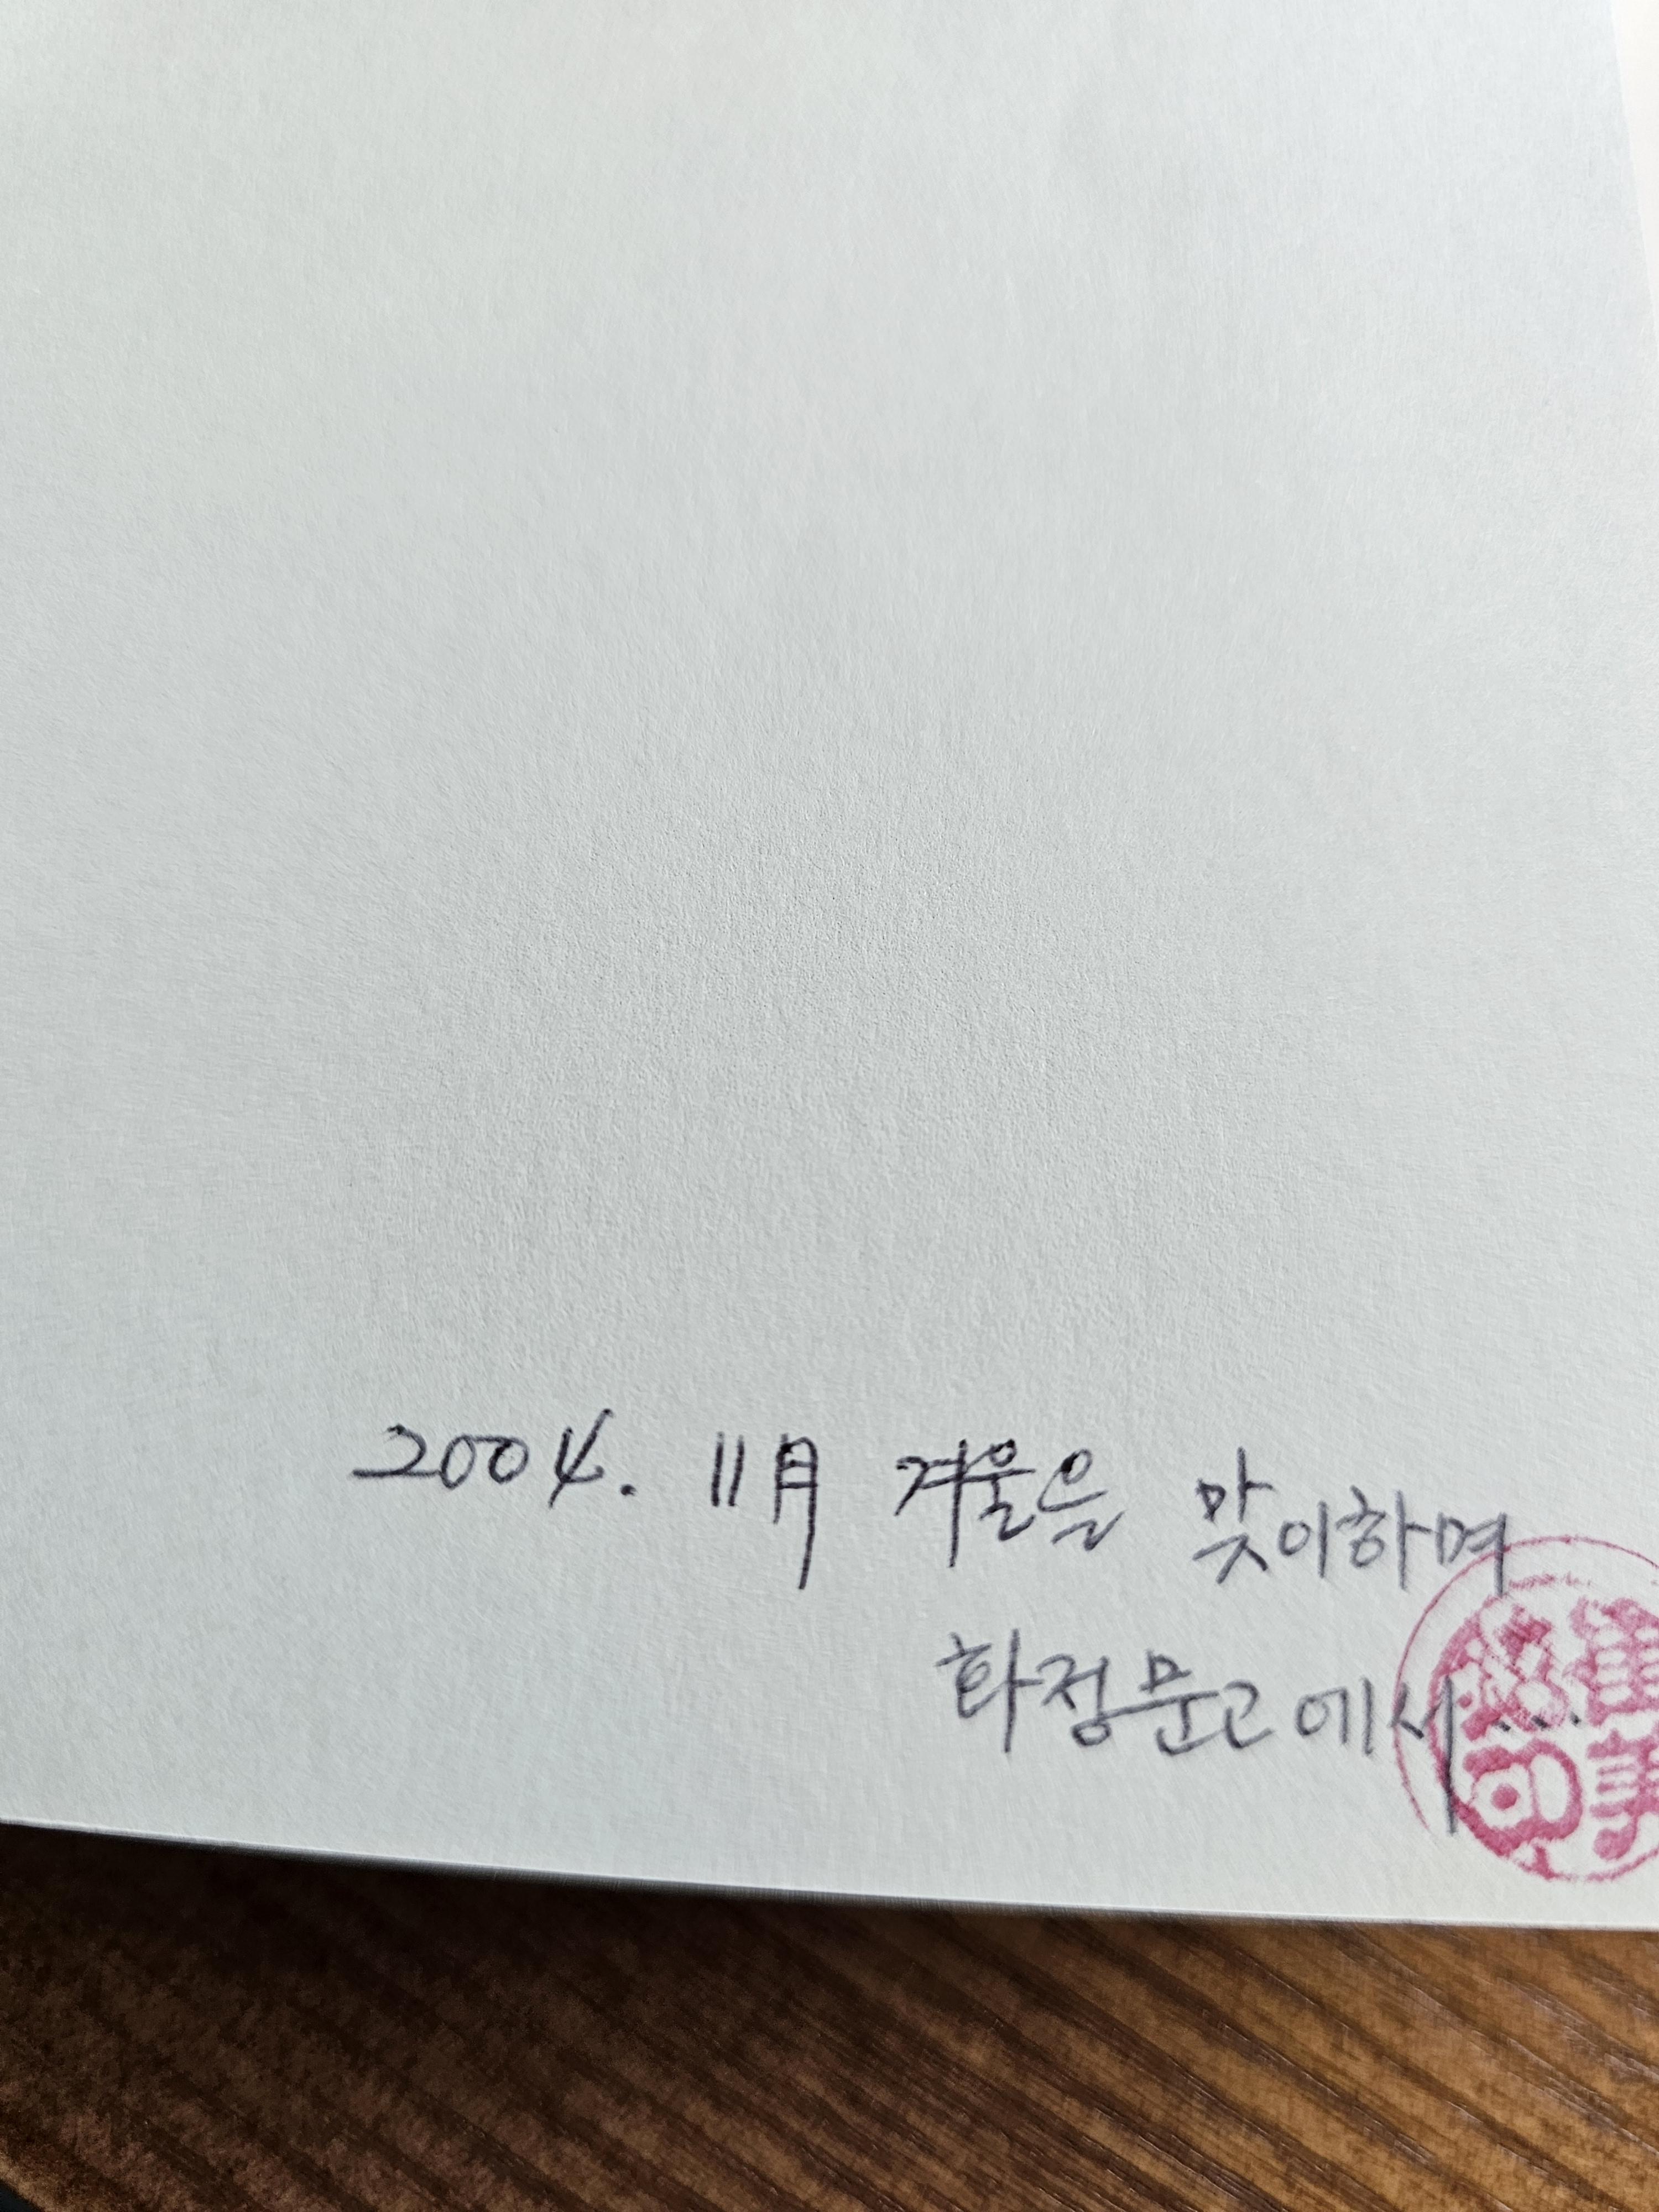 2004. 11月 겨울을 맞이하며
화정문고에서...